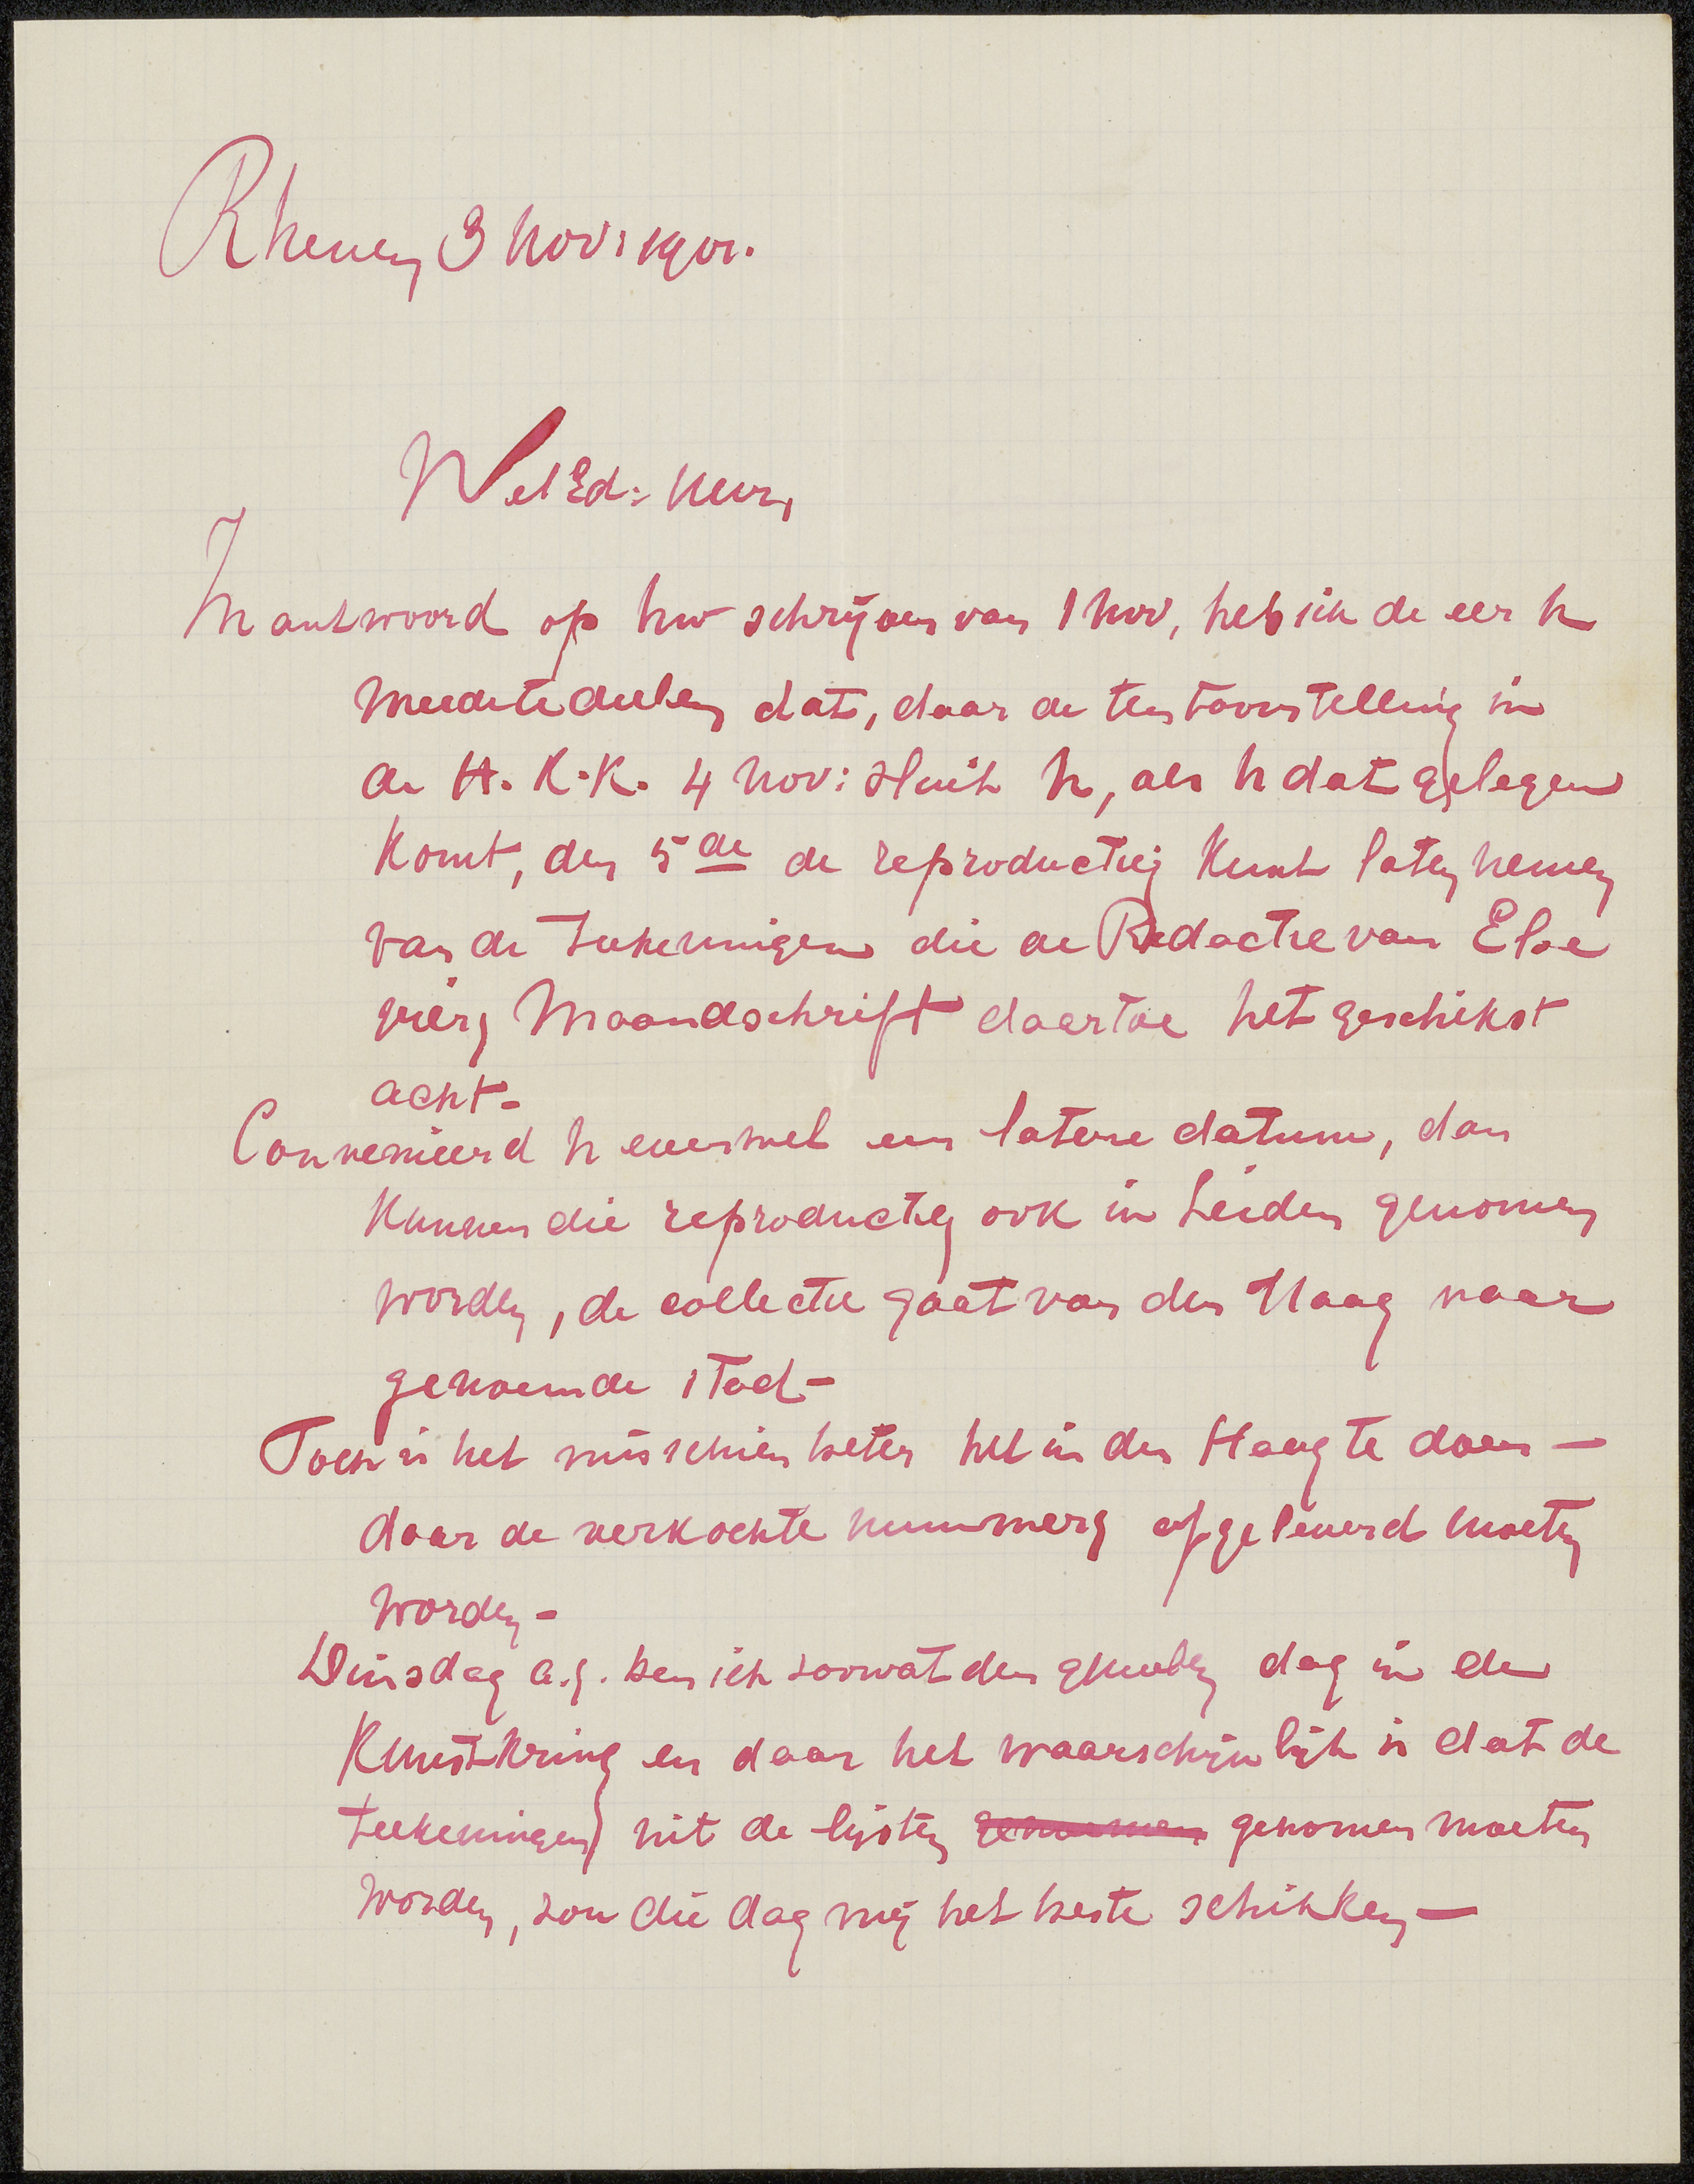 Rhenen 3 Nov: 1901.
WelEd: Heer,
In antwoord op Uw schrijven van 1 Nov, heb ik de eer U
meedetedeelen dat, daar de tentoonstelling in
de H. K. K. 4 Nov: sluit U, als U dat gelegen
komt, den 5de de reproductiën kunt laten nemen
van de teekeningen die de Redactie van Else
viers Maandschrift daartoe het geschikst
acht-
Convenieerd U evenwel een latere datum, dan
kunnen die reproductien ook in Leiden genomen
worden, de collectie gaat van den Haag naar
genoemde stad-
Toch is het misschien beter het in den Haag te doen —
daar de verkochte nummers afgeleverd moeten
worden-
Dinsdag a.s. ben ik zoowat den geheelen dag in den
Kunstkring en daar het waarschijnlijk is dat de
teekeningen uit de lijsten genomen genomen moeten
worden, zou die dag mij het beste schikken—